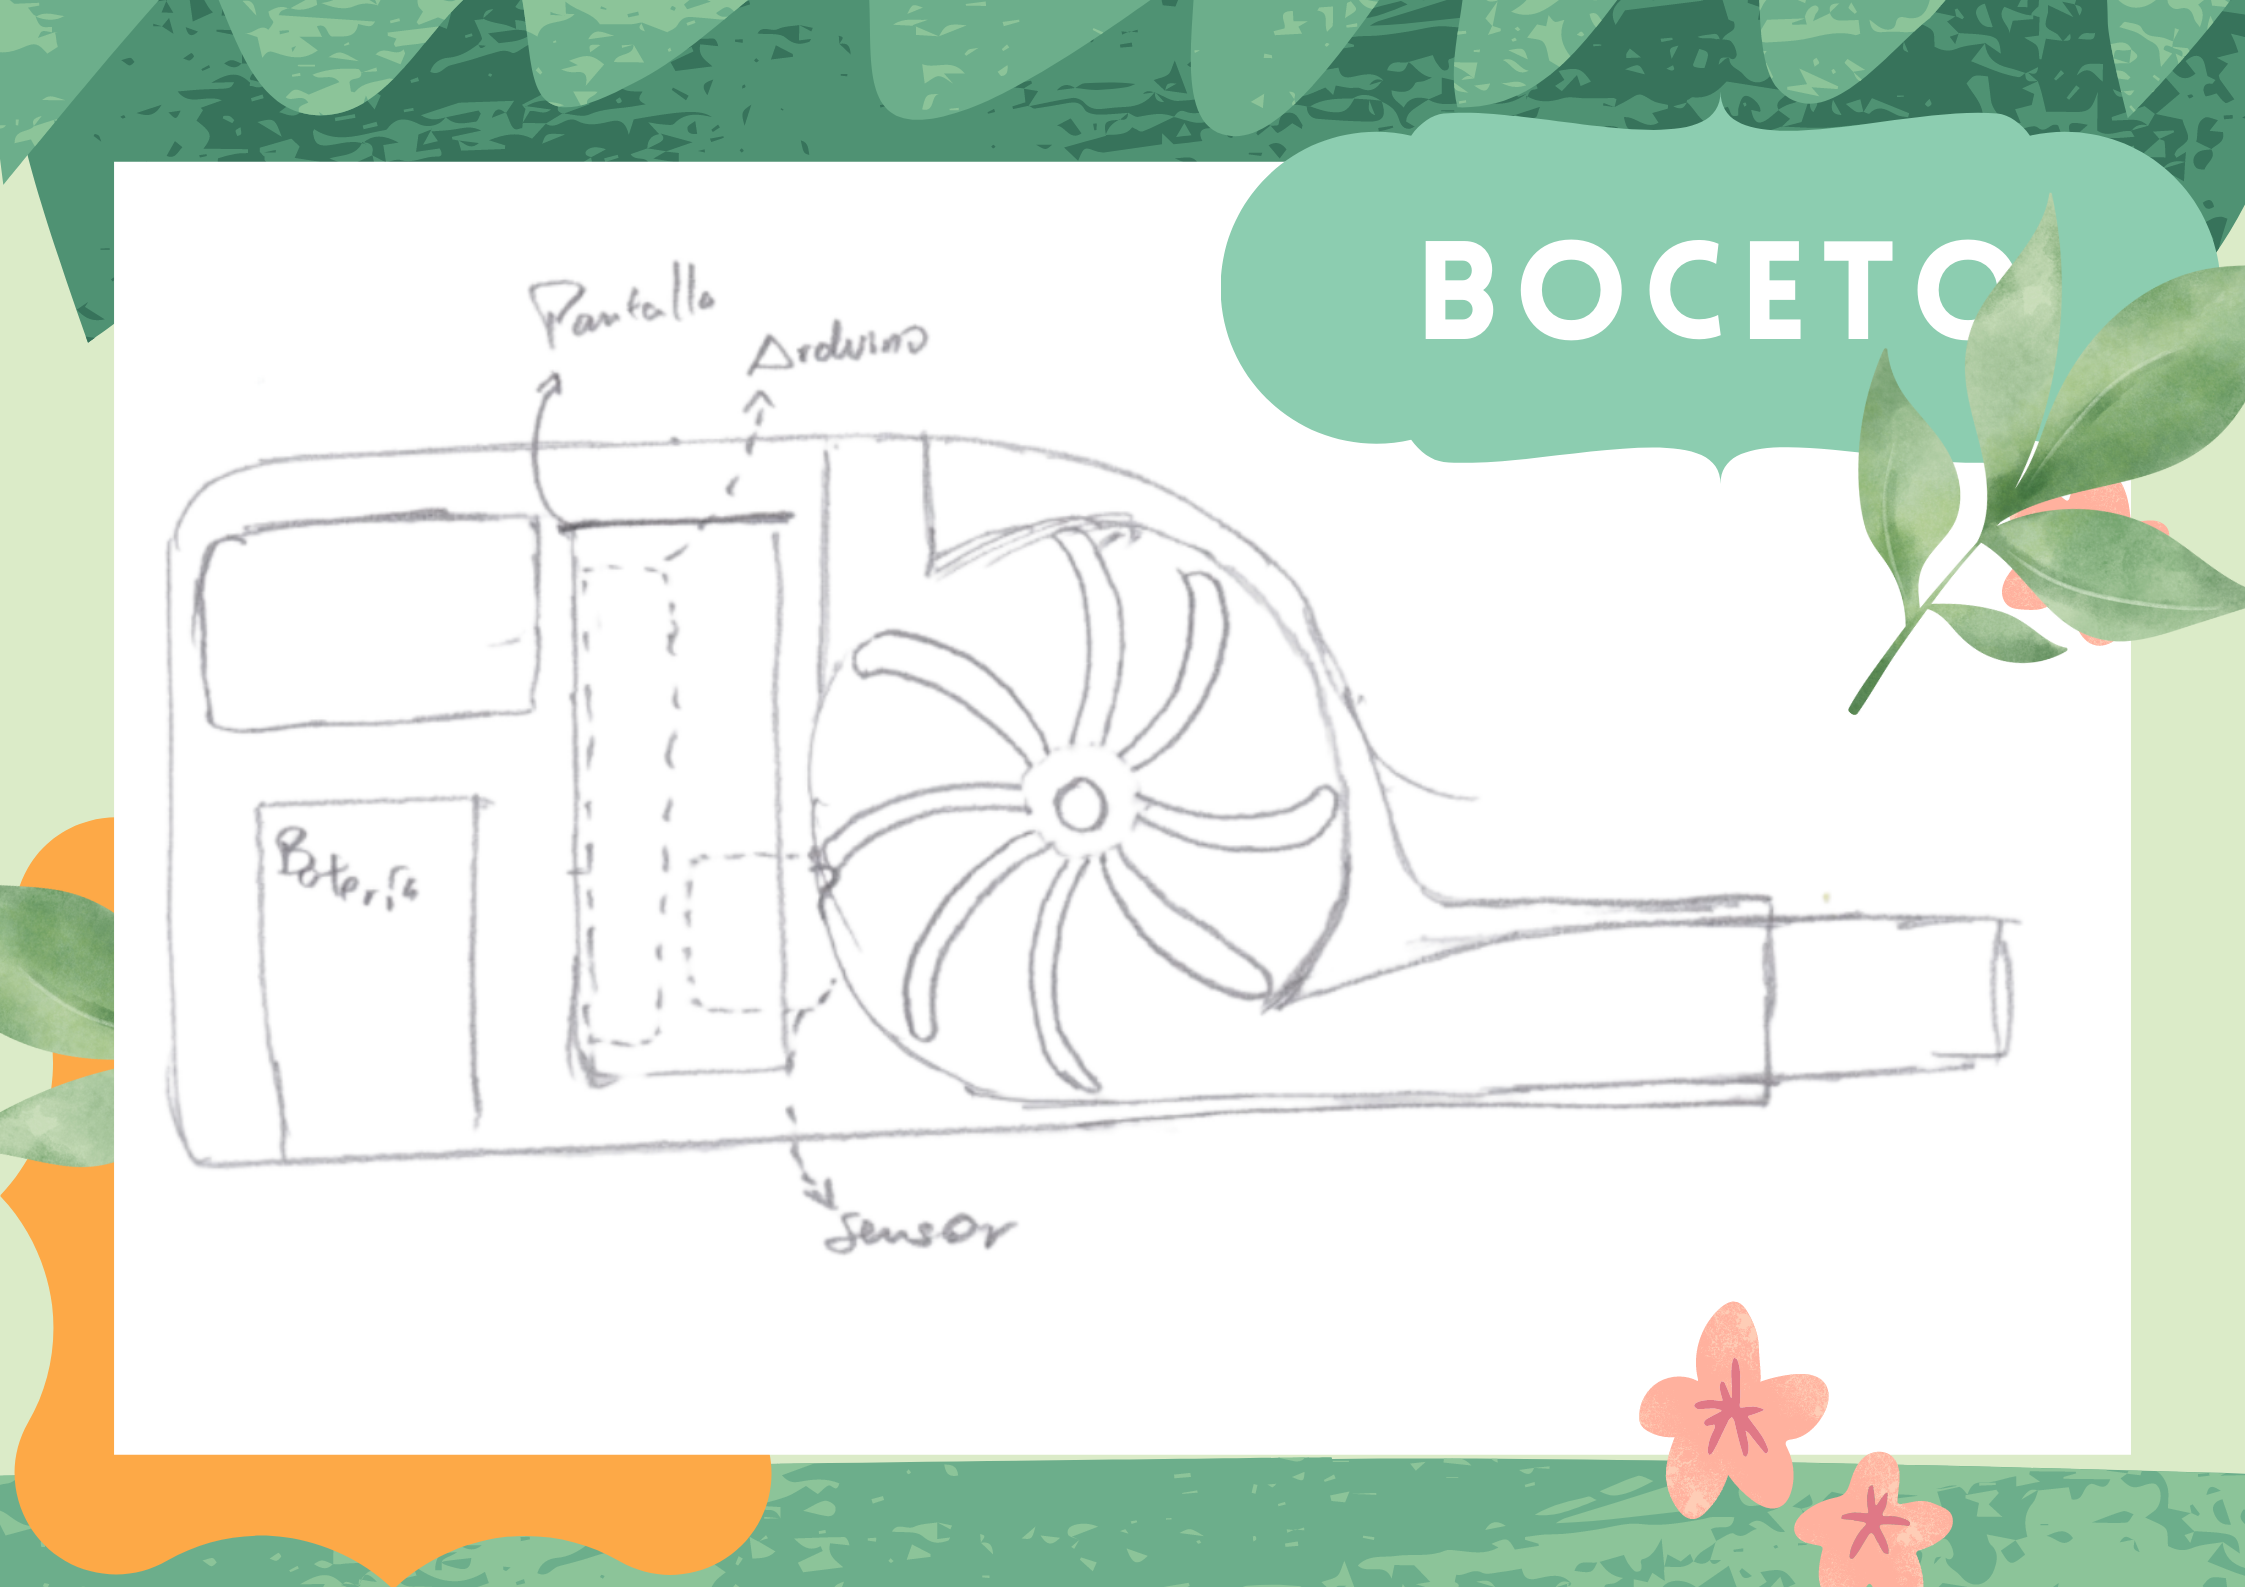 BOCETO
Pantalla
Arduino
Batería
Sensor